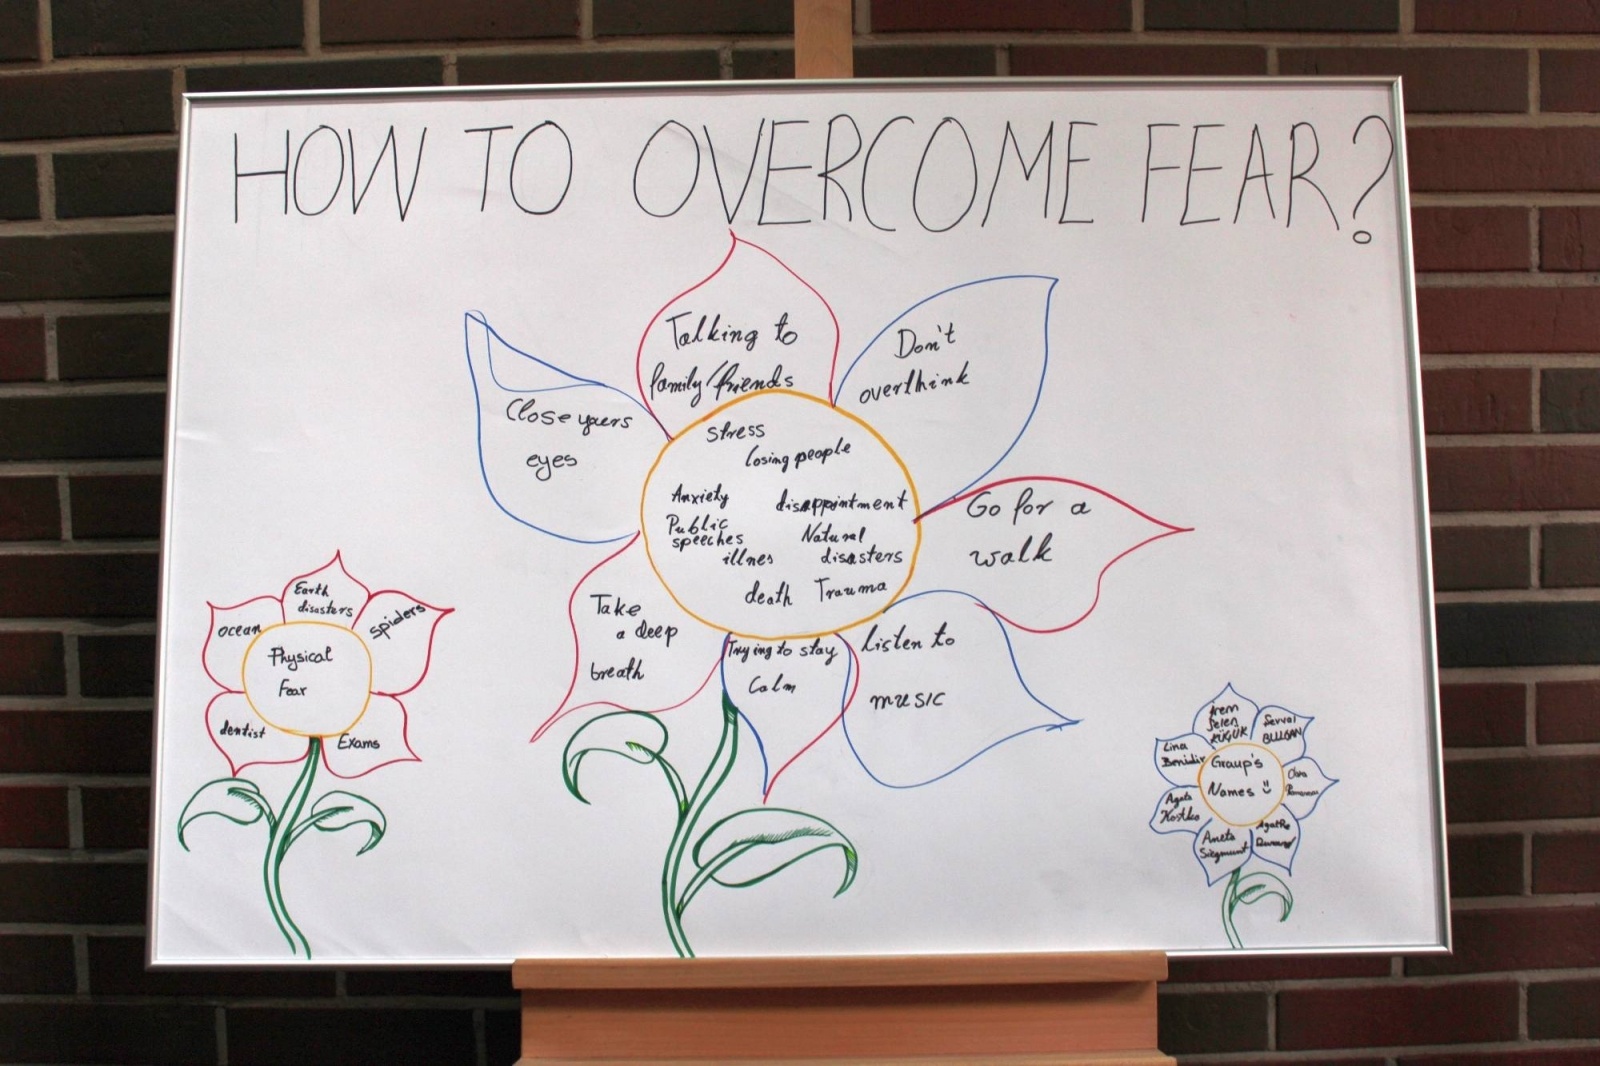 HOW TO OVERCOME FEAR?
Talking to
family/friends
Don't
overthink
Close yuers
eyes
Go for a
walk
Take
a deep
breath
Trying to stay
Calm
Listen to
music
stress
losing people
Anxiety
disappointment
Public
speeches
Natural
disasters
illnes
death
Trauma
Physical
Fear
Earth
disasters
spiders
ocean
dentist
Exams
Group's
Names
Lina
Benidir
Agata
Kostka
Aneta
Siegmunt